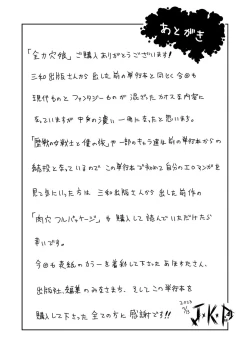 あとがき
「全力穴娘」ご購入ありがとうございます!
三和出版さんから出した前の単行本と同じく今回も
現代ものとファンタジーものが混ざったカオスな内容に
なっていますが中身の濃い一冊になったと思います。
「歴戦の女戦士と僕の旅」や一部のキャラ達は前の単行本からの
続投となっているのでこの単行本で初めて自分のエロマンガを
見て気にいった方は三和出版さんから出した前作の
「肉穴フルパッケージ」も購入して読んでいただけたら
幸いです。
今回も表紙のカラーを着彩して下さった
出版社、編集のみなさま方、そしてこの単行本を
購入して下さった全ての方に感謝です!!
2023
J.K.P